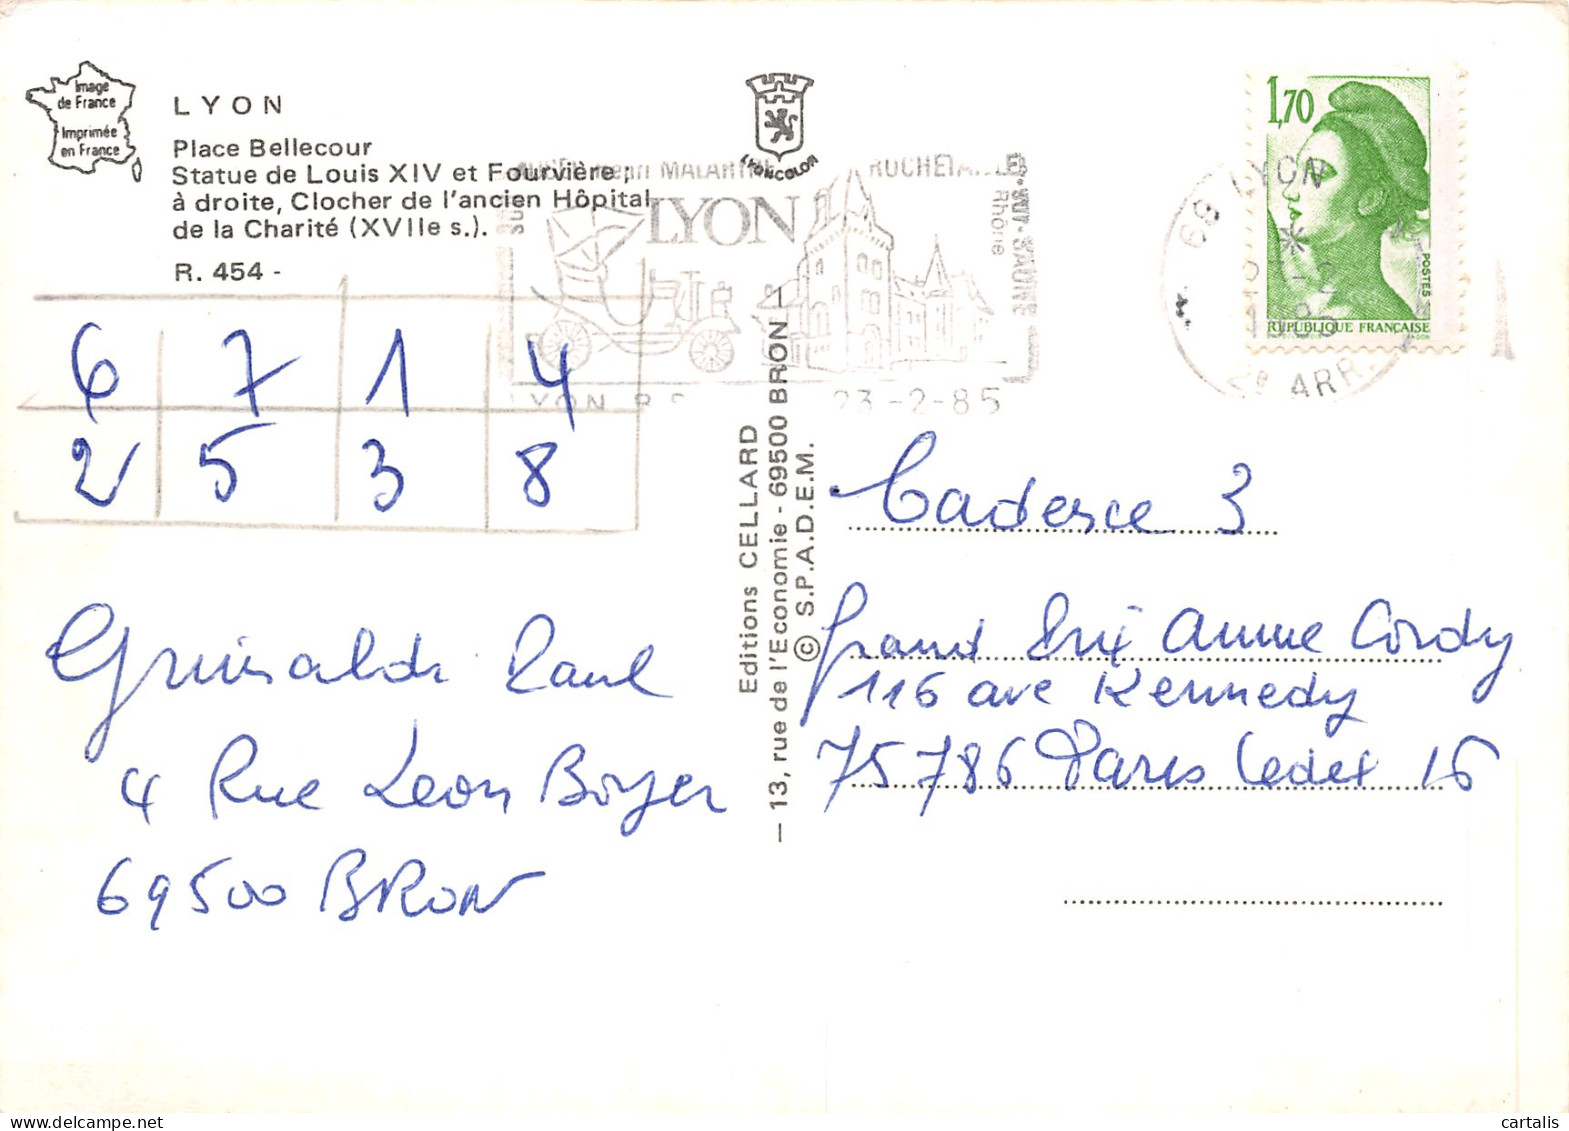 Image
de France
Imprimée
en France
LYON
Place Bellecour
Statue de Louis XIV et Fourvière ;
à droite, Clocher de l'ancien Hôpital
de la Charité (XVIIe s.).
R. 454 -
LYONCOLOR
MALARTRE
LYON
Rhône
LYON
23-2-85
69 LYON
2e ARR.
1,70
POSTES
REPUBLIQUE FRANÇAISE
6 7 1 4
2 5 3 8
Grimaldi Paul
4 Rue Leon Boyer
69500 BRON
Editions CELLARD
— 13, rue de l'Economie - 69500 BRON —
© S.P.A.D.E.M.
Cadence 3
Grand Prix Annie Cordy
116 ave Kennedy
75786 Paris Cedex 16
cartalis.com